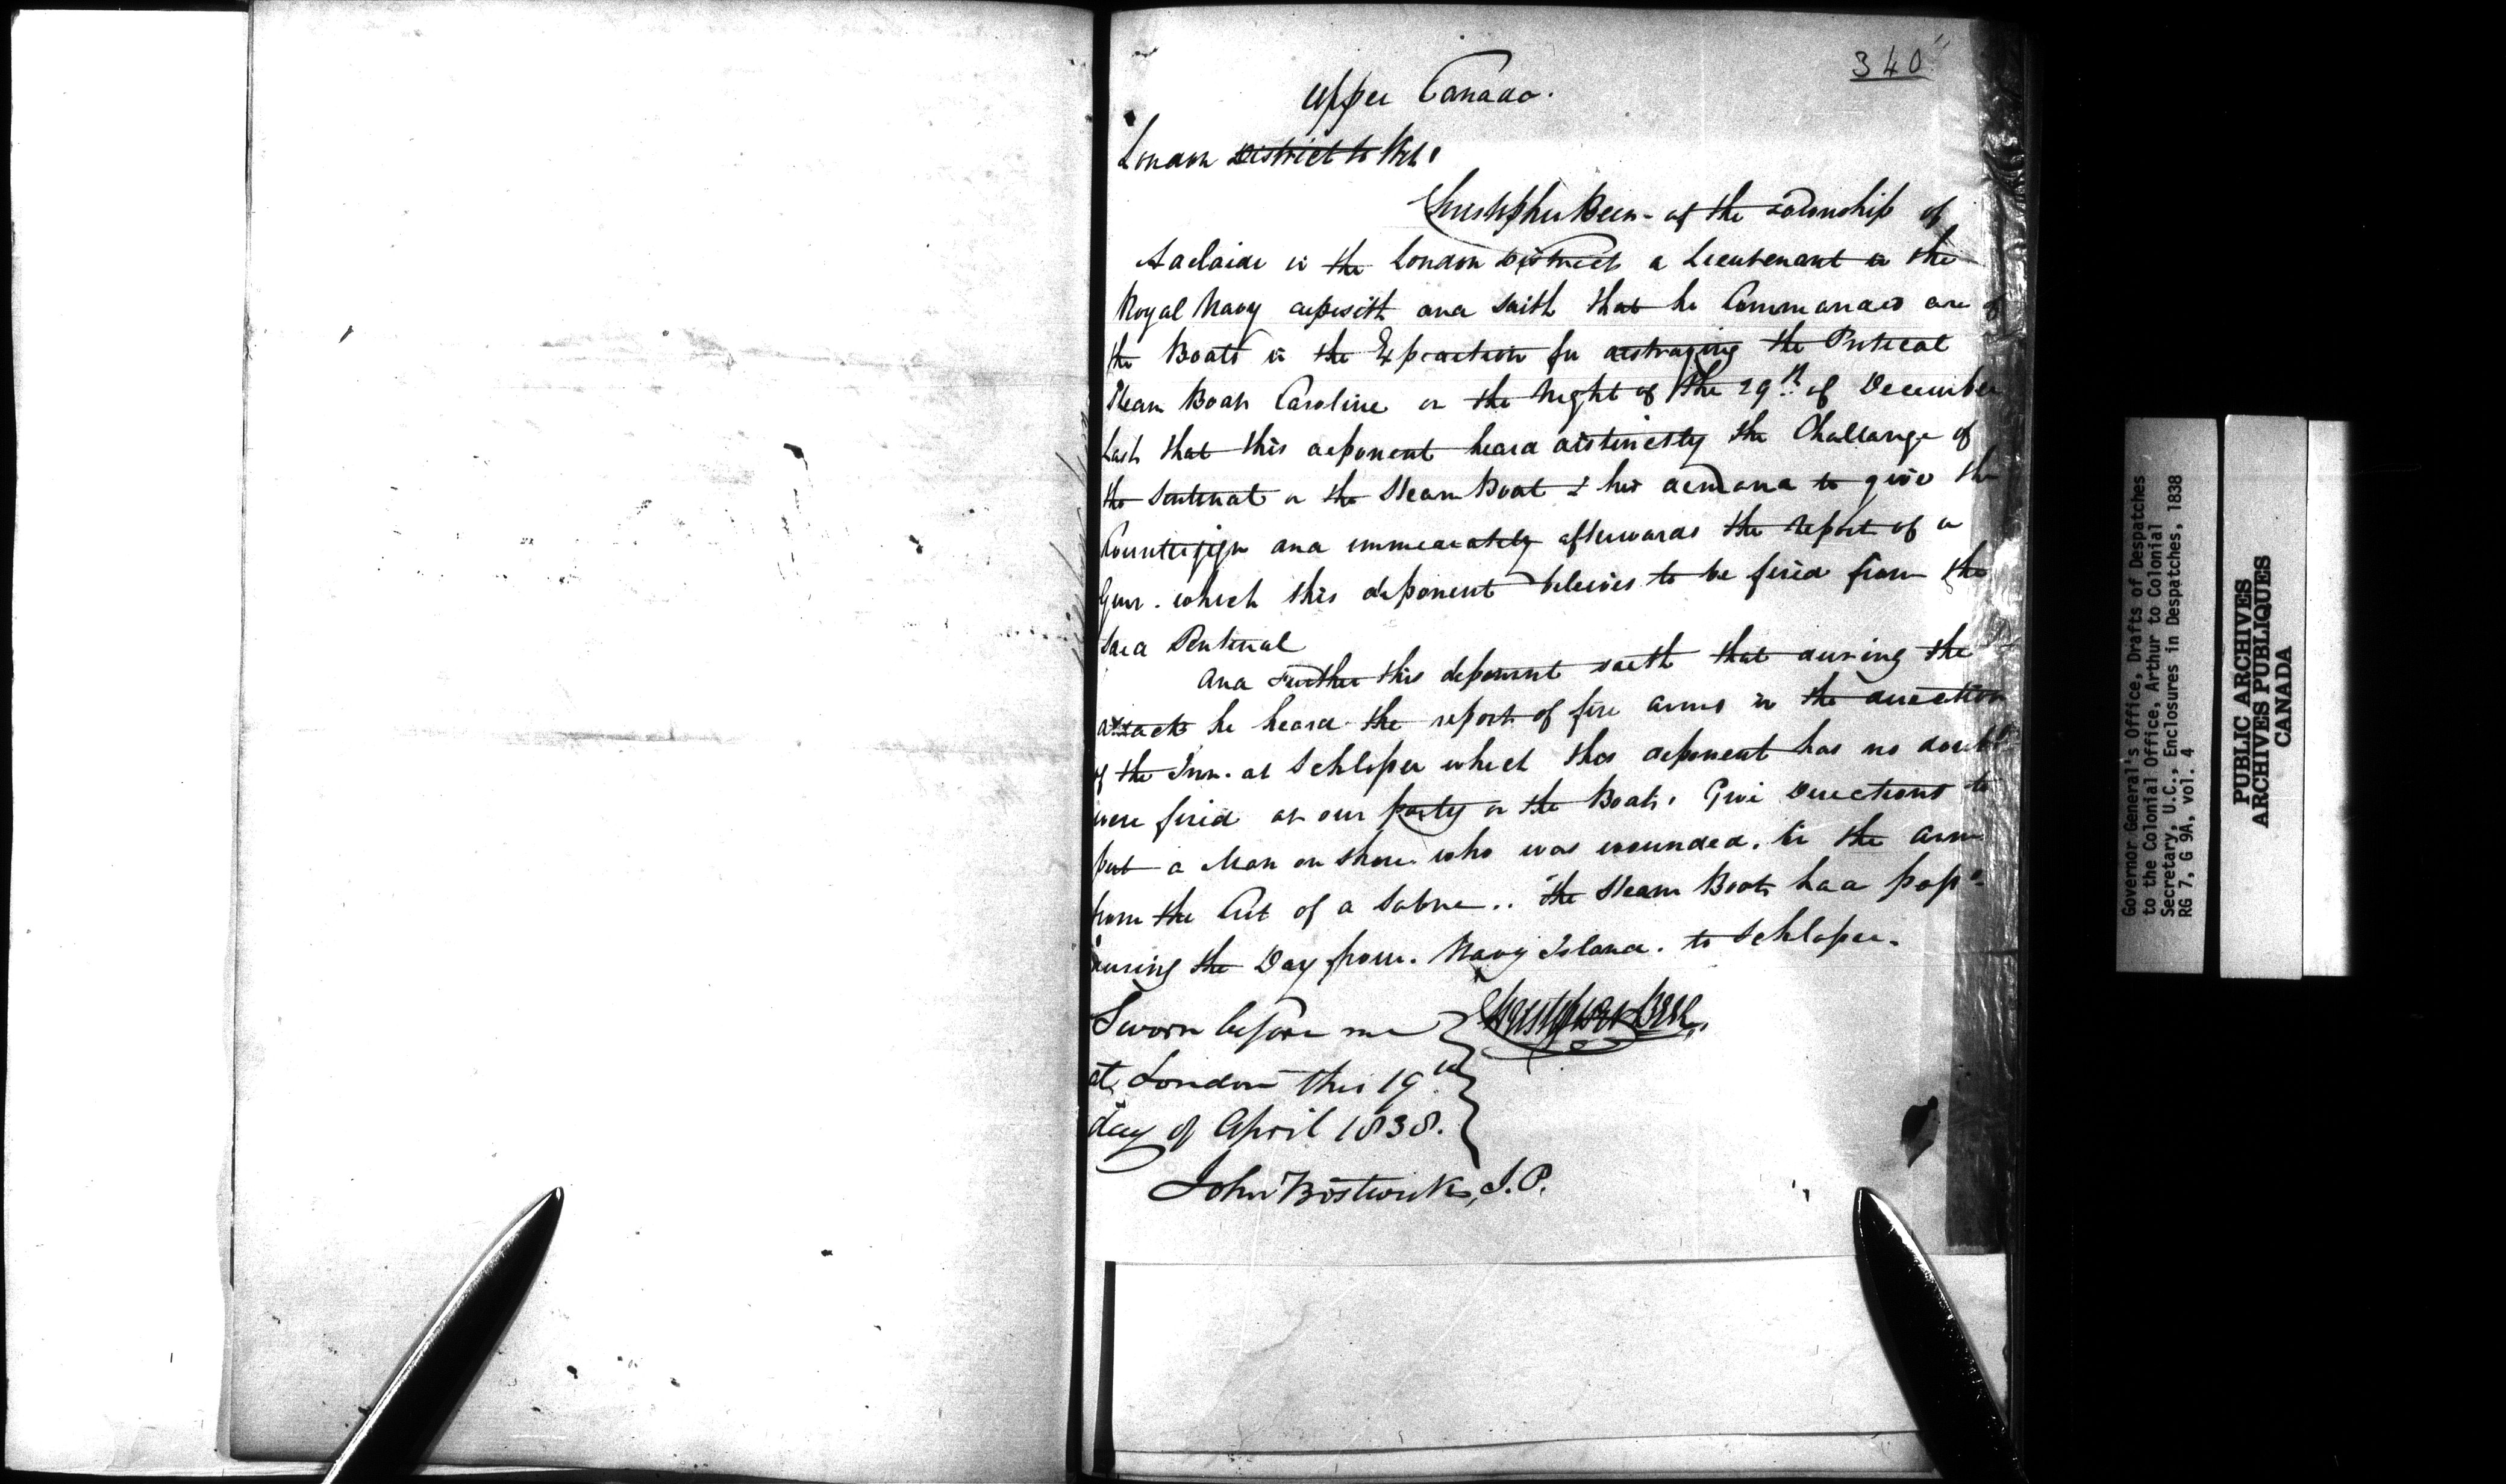 340
Upper Canada.
London District to Wit:
Christopher Beer - of the Township of
Adelaide in the London District a Lieutenant in the
Royal Navy deposeth and saith that he Commanded one of
the Boats in the Expedition for destroying the Piratical
Steam Boat Caroline on the Night of the 29th of December
last that this deponent heard distinctly the Challange of
the Sentinal on the Steam Boat & his demand to give the
Countersign and immediately afterwards the report of a
Gun. which this deponent beleives to be fired from the
said Sentinal
And Further this deponent saith that during the
attack he heard the report of fire arms in the direction
of the Inn. at Schloper which this deponent has no doubt
were fired at our party in the Boats. Give Directions to
put a Man on shore who was wounded. in the arm
from the Cut of a Sabre.. the Steam Boat had pass'd
during the Day from. Navy Island. to Schloper.
Sworn before me
Christopher Beer
at London this 19th
day of April 1838.
John Bostwick, J.P.
Governor General's Office, Drafts of Despatches
to the Colonial Office, Arthur to Colonial
Secretary, U.C., Enclosures in Despatches, 1838
RG 7, G 9A, vol. 4
PUBLIC ARCHIVES
ARCHIVES PUBLIQUES
CANADA